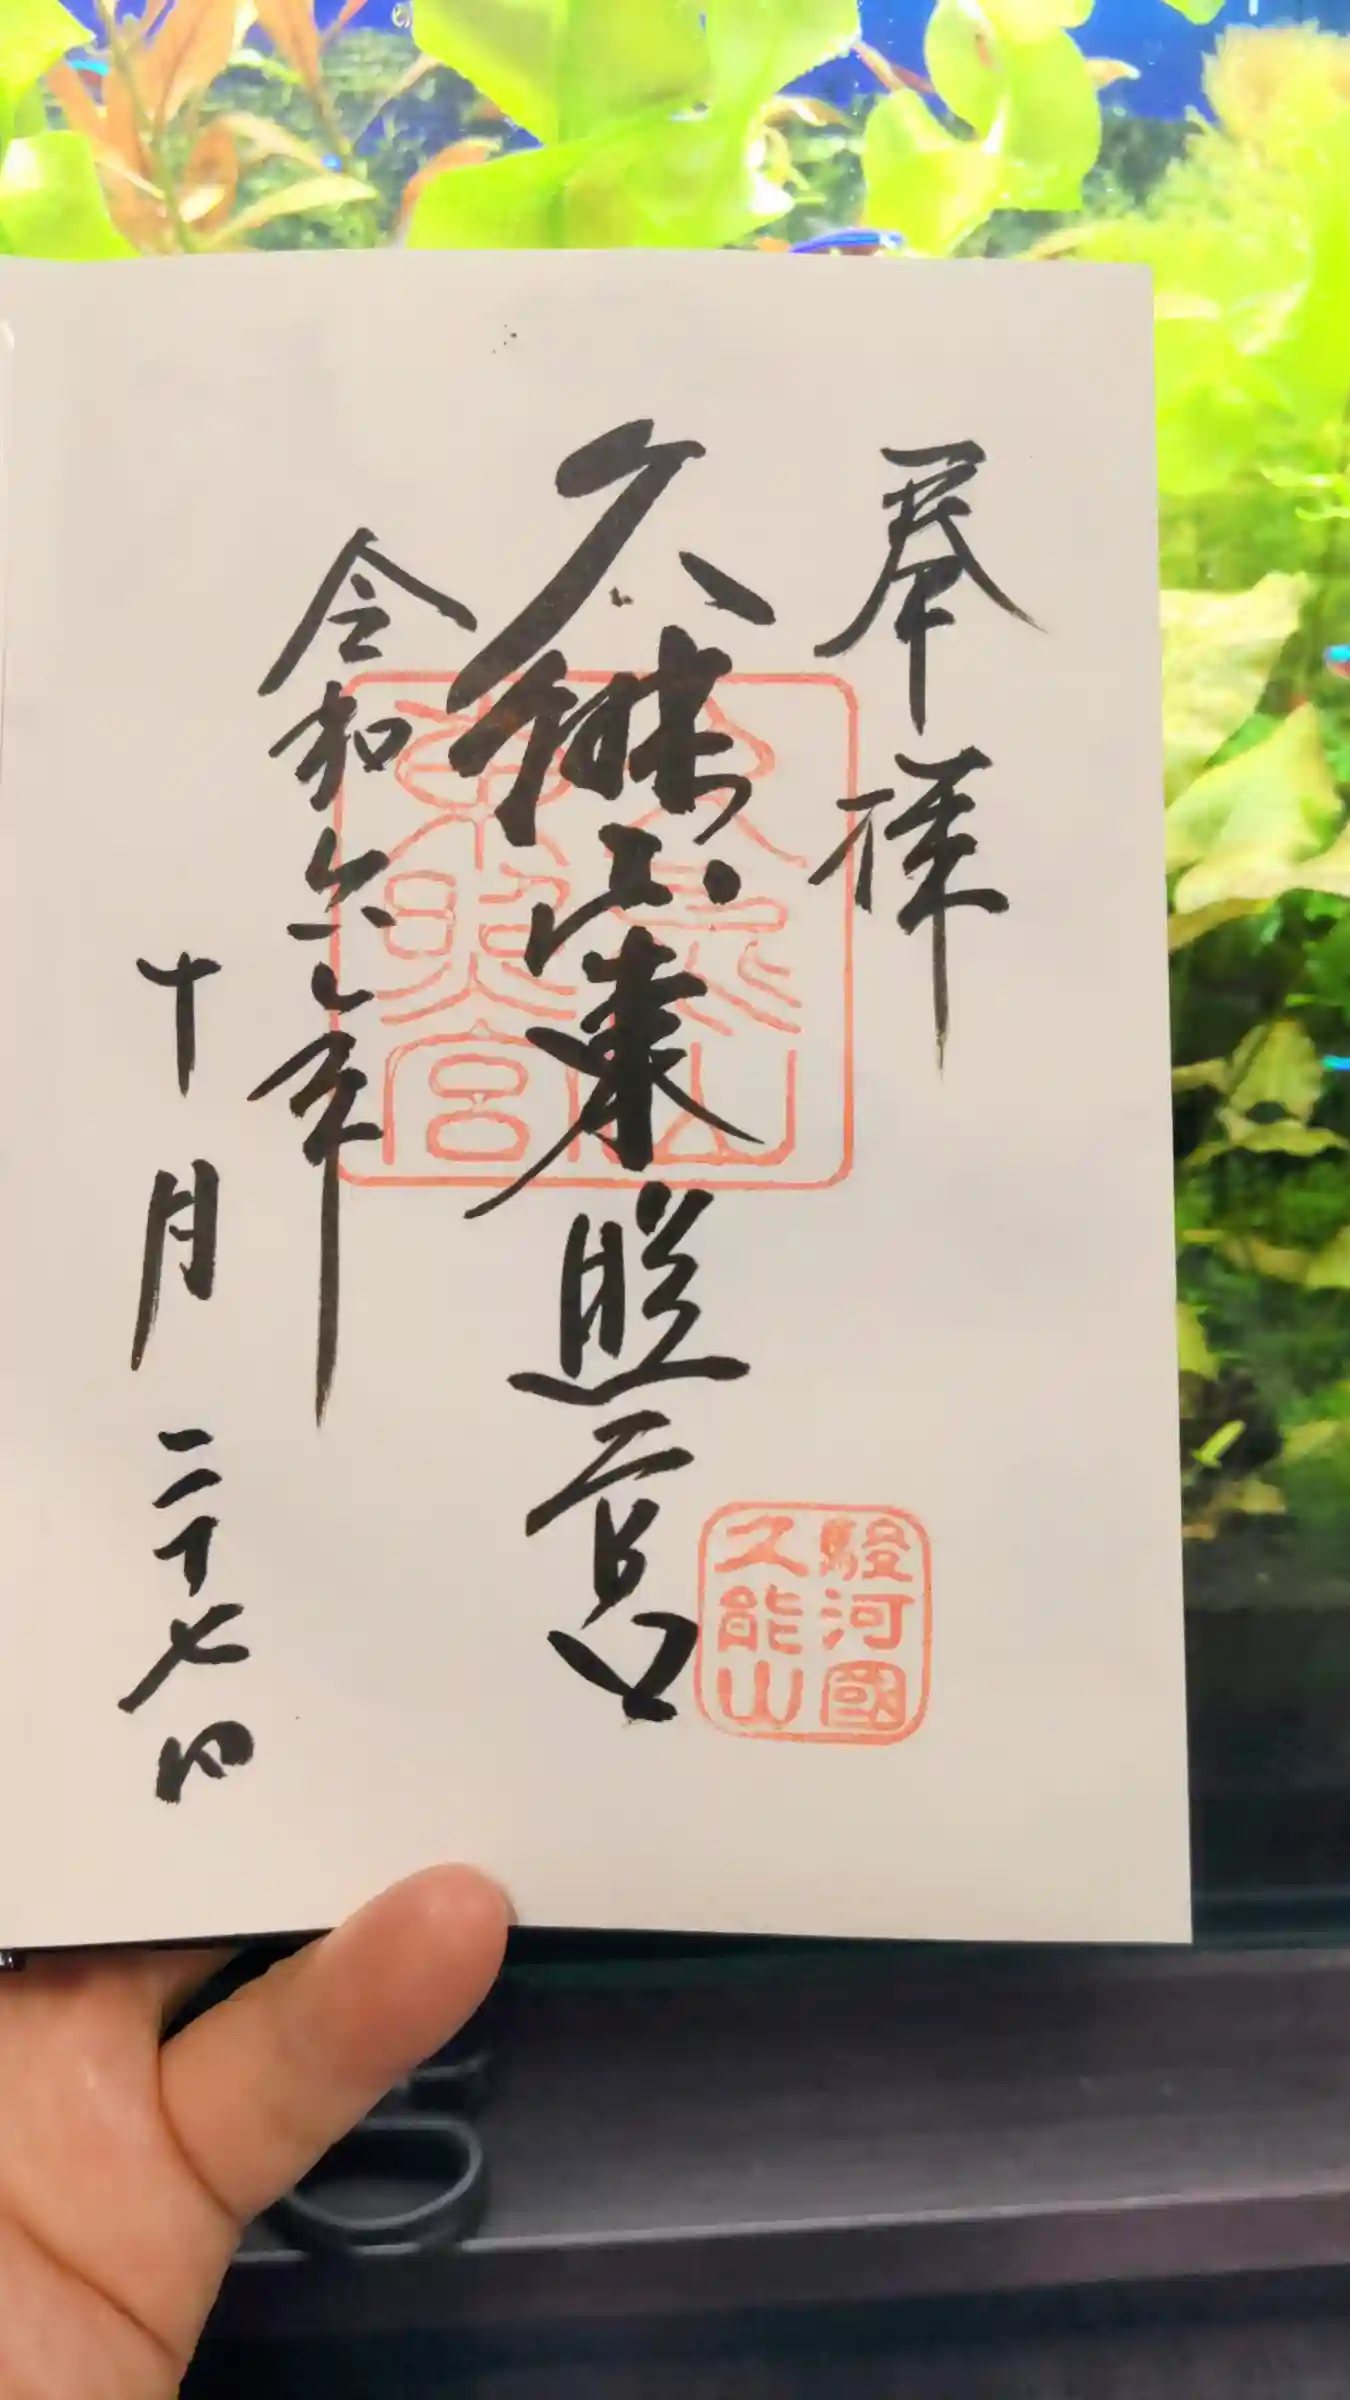 奉拝
久能山東照宮
久能山
東照宮
駿河國
久能山
令和六年
十月二十七日